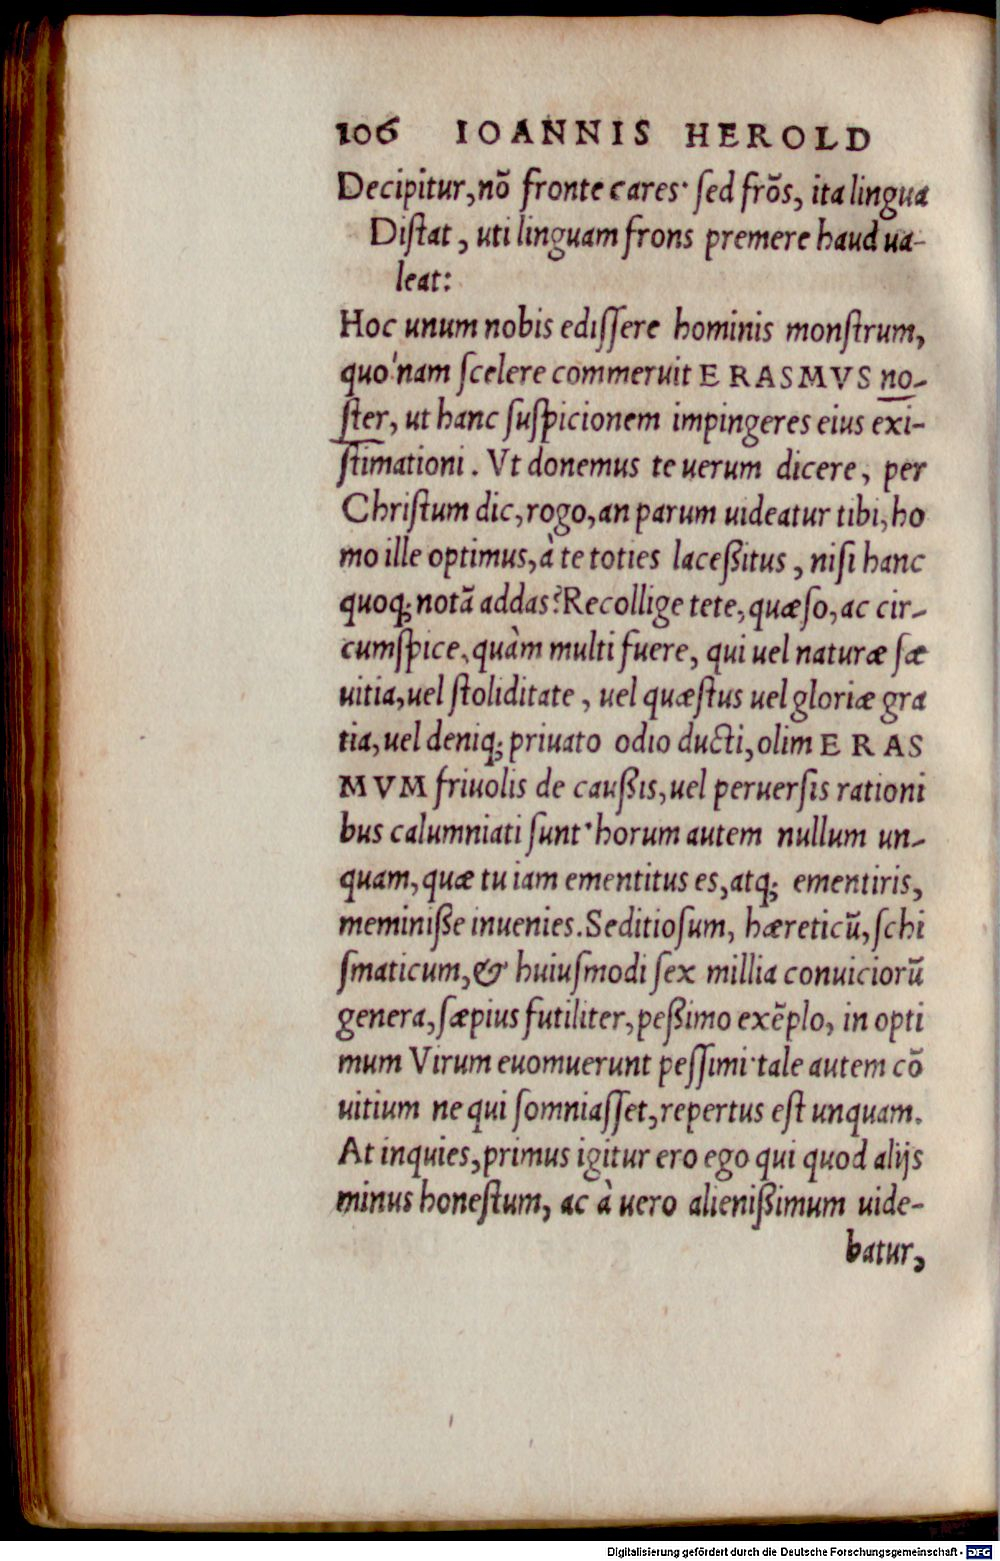 106 IOANNIS HEROLD
Decipitur, nō fronte cares· ſed frōs, ita lingua
Diſtat, uti linguam frons premere haud ua-
leat:
Hoc unum nobis ediſſere hominis monſtrum,
quo'nam ſcelere commeruit ERASMVS no-
ſter, ut hanc ſuſpicionem impingeres eius exi-
ſtimationi. Vt donemus te uerum dicere, per
Chriſtum dic, rogo, an parum uideatur tibi, ho
mo ille optimus, à te toties laceßitus, niſi hanc
quoq; notā addas? Recollige tete, quæſo, ac cir-
cumſpice, quàm multi fuere, qui uel naturæ ſæ
uitia, uel ſtoliditate, uel quæſtus uel gloriæ gra
tia, uel deniq; priuato odio ducti, olim ERAS
MVM friuolis de caußis, uel peruerſis rationi
bus calumniati ſunt· horum autem nullum un-
quam, quæ tu iam ementitus es, atq; ementiris,
meminiße inuenies. Seditioſum, hæreticū, ſchi
ſmaticum, & huiuſmodi ſex millia conuiciorū
genera, ſæpius futiliter, peßimo exēplo, in opti
mum Virum euomuerunt peſſimi· tale autem cō
uitium ne qui ſomniaſſet, repertus eſt unquam.
At inquies, primus igitur ero ego qui quod alijs
minus honeſtum, ac à uero alienißimum uide-
batur,
Digitalisierung gefördert durch die Deutsche Forschungsgemeinschaft - DFG